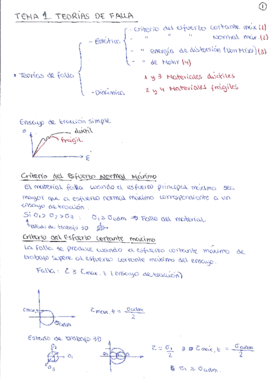 1
TEMA 1 TEORÍAS DE FALLA
- criterio del esfuerzo cortante máx (1)
- Estático - " " " Normal máx (2)
- " energía de distorsión (Von Mises) (3)
• Teorías de falla - " de Mohr (4)
1 y 3 Materiales dúctiles
- Dinámica 2 y 4 Materiales frágiles
Ensayo de tracción simple
σ dúctil
frágil
ε
Criterio del Esfuerzo Normal Máximo
El material falla cuando el esfuerzo principal máximo sea
mayor que el esfuerzo normal máximo correspondiente a un
ensayo de tracción
Si σ1 > σ2 > σ3 : σ1 ≥ σadm → Falla del material
Criterio del Esfuerzo cortante máximo
La falla se produce cuando el esfuerzo cortante máximo de
trabajo supera al esfuerzo cortante máximo del ensayo.
Falla: τ ≥ τmax. t (ensayo de tracción)
τmax, t = σadm/2
σadm
Estado de trabajo 3D
τ = σ1/2 ≥ τmáx, t = σadm/2
σ1 ≥ σadm